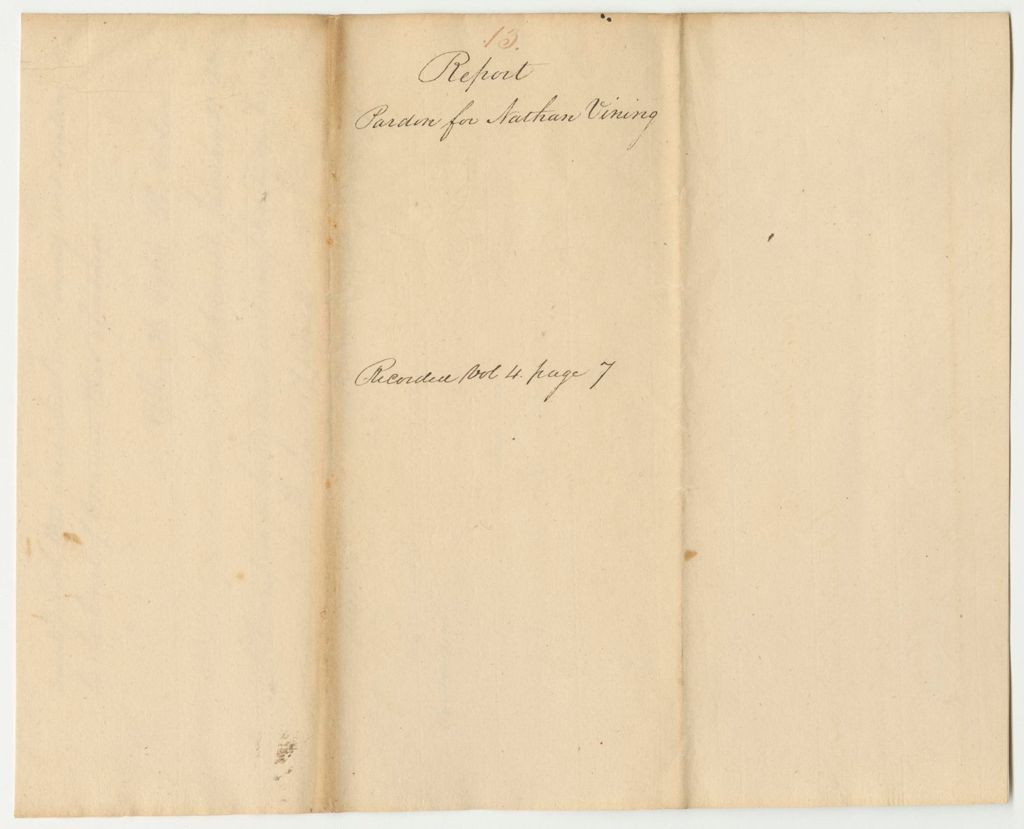 13.
Report
Pardon for Nathan Vining
Recorded Vol 4. page 7